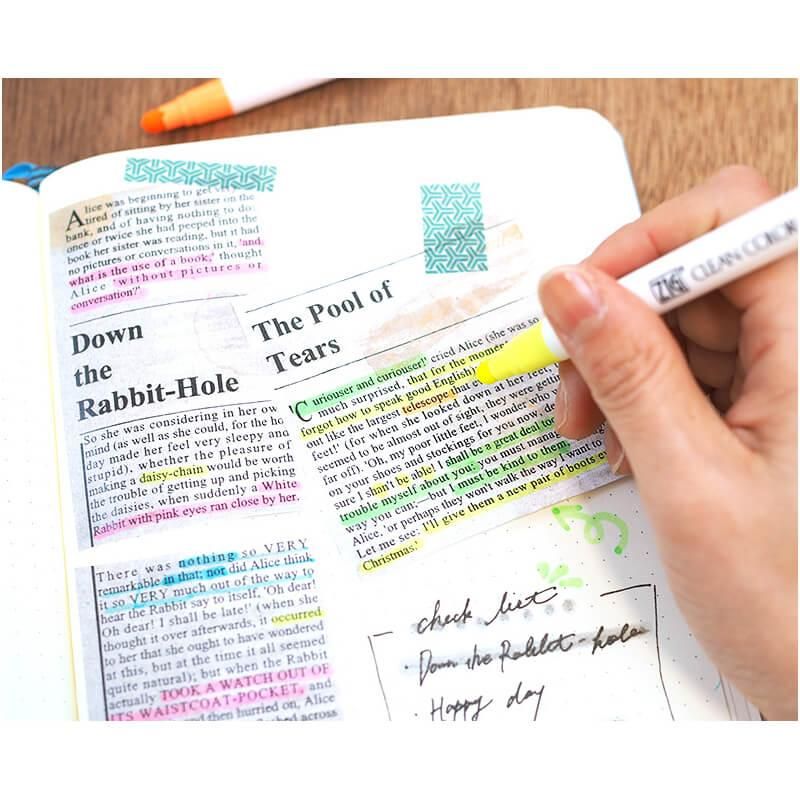 Alice was beginning to get very
tired of sitting by her sister on the
bank, and of having nothing to do:
once or twice she had peeped into the
book her sister was reading, but it had
no pictures or conversations in it, 'and
what is the use of a book,' thought
Alice 'without pictures or
conversation?'
Down
the
Rabbit-Hole
So she was considering in her ow
mind (as well as she could, for the ho
day made her feel very sleepy and
stupid), whether the pleasure of
making a daisy-chain would be worth
the trouble of getting up and picking
the daisies, when suddenly a White
Rabbit with pink eyes ran close by her.
There was nothing so VERY
remarkable in that; nor did Alice think
it so VERY much out of the way to
hear the Rabbit say to itself, 'Oh dear!
Oh dear! I shall be late!' (when she
thought it over afterwards, it occurred
to her that she ought to have wondered
at this, but at the time it all seemed
quite natural); but when the Rabbit
actually TOOK A WATCH OUT OF
ITS WAISTCOAT-POCKET, and
and then hurried on, Alice
across
The Pool of
Tears
'Curiouser and curiouser!' cried Alice (she was so
much surprised, that for the moment
forgot how to speak good English)
out like the largest telescope that e
feet!' (for when she looked down at her feet
seemed to be almost out of sight, they were getting
far off). 'Oh, my poor little feet, I wonder who
on your shoes and stockings for you now, de
sure I shan't be able! I shall be a great deal too
trouble myself about you: you must manage
way you can;—but I must be kind to them,'
Alice, 'or perhaps they won't walk the way I want to
Let me see: I'll give them a new pair of boots ev
Christmas.'
ZIG CLEAN COLOR
check list
· Down the Rabbit-hole
· Happy day